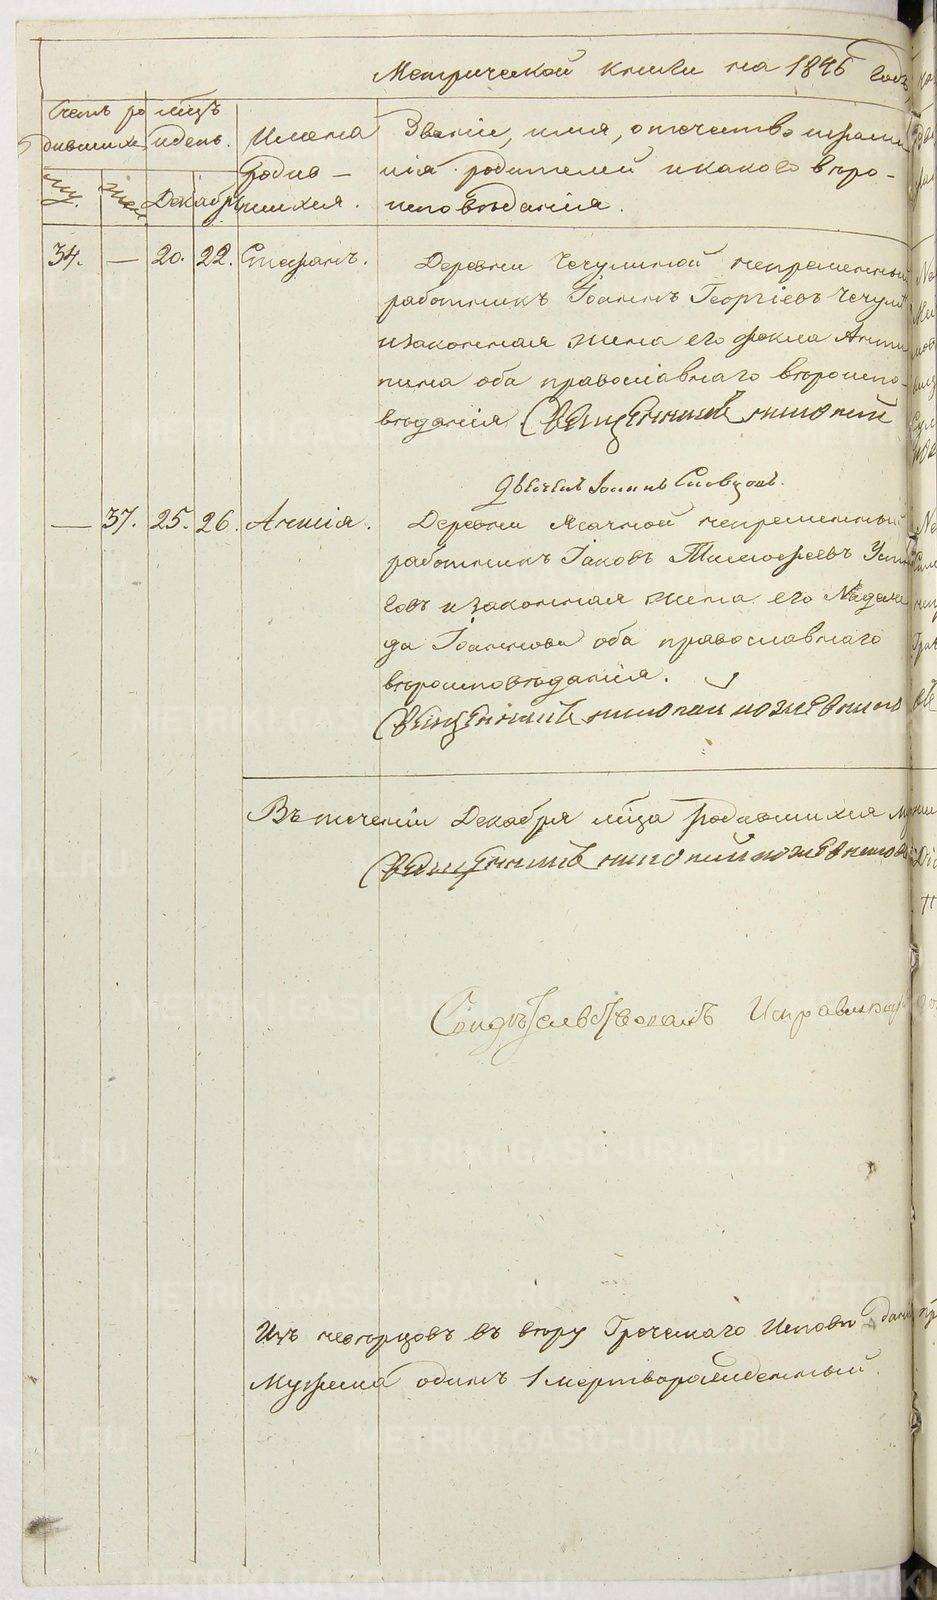 Метрической книги на 1846 годъ
Счетъ ро мѣцъ
дившихся идень. Имена Званіе, имя, отечество ифами
родив- лія родителей икакого вѣро-
Му. Жен. Декабрь шихся. исповѣданія.
34. — 20. 22. Стефанъ. Деревни Чечулиной непременный
работникъ Іоаннъ Георгіевъ Чечули
изаконная жена его Фекла Анти
пина оба православнаго вѣроиспо-
вѣданія. Священникъ
Дьячекъ Іоаннъ Словцовъ.
— 37. 25. 26. Анисія. Деревни Ясачной непременный
работникъ Іаковъ Тимофеевъ
говъ изаконная жена его Надеж
да Іоаннова оба православнаго
вѣроисповѣданія.
Священникъ
Въ теченіи Декабря мѣца родившихся
Священникъ
Свидѣтельствовалъ
Изъ неторцовъ въ вѣру Греческаго Испове дан
Мужеска одинъ 1 мертворожденный.
METRIKI.GASO-URAL.RU